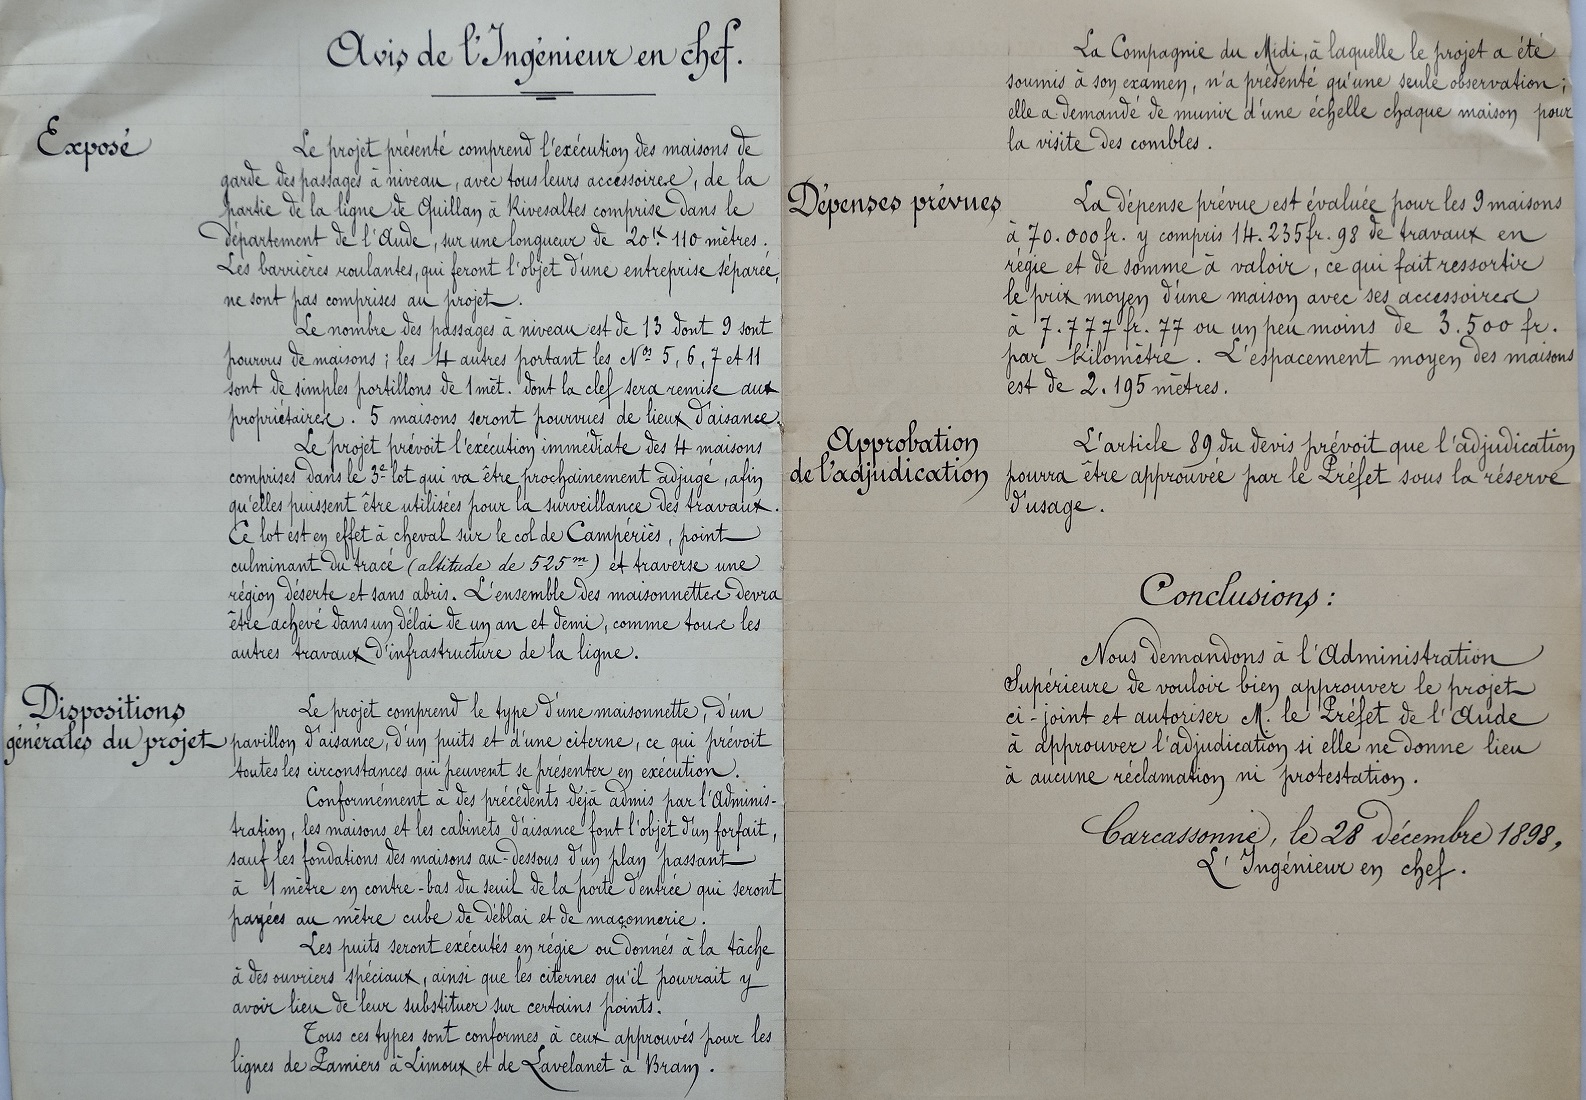 Avis de l'Ingénieur en chef.
Exposé
Le projet présenté comprend l'exécution des maisons de
garde des passages à niveau, avec tous leurs accessoires, de la
partie de la ligne de Quillan à Rivesaltes comprise dans le
département de l'Aude, sur une longueur de 20k 110 mètres.
Les barrières roulantes, qui feront l'objet d'une entreprise séparée,
ne sont pas comprises au projet.
Le nombre des passages à niveau est de 13 dont 9 sont
pourvus de maisons ; les 4 autres portant les Nos 5, 6, 7 et 11
sont de simples portillons de 1 mèt. dont la clef sera remise aux
propriétaires. 5 maisons seront pourvues de lieux d'aisance.
Le projet prévoit l'exécution immédiate des 4 maisons
comprises dans le 3e lot qui va être prochainement adjugé, afin
qu'elles puissent être utilisées pour la surveillance des travaux.
Ce lot est en effet à cheval sur le col de Campériès, point
culminant du tracé (altitude de 525m) et traverse une
région déserte et sans abris. L'ensemble des maisonnettes devra
être achevé dans un délai de un an et demi, comme tous les
autres travaux d'infrastructure de la ligne.
Dispositions
générales du projet
Le projet comprend le type d'une maisonnette, d'un
pavillon d'aisance, d'un puits et d'une citerne, ce qui prévoit
toutes les circonstances qui peuvent se présenter en exécution.
Conformément à des précédents déjà admis par l'Adminis-
tration, les maisons et les cabinets d'aisance font l'objet d'un forfait,
sauf les fondations des maisons au-dessous d'un plan passant
à 1 mètre en contre-bas du seuil de la porte d'entrée qui seront
payées au mètre cube de déblai et de maçonnerie.
Les puits seront exécutés en régie ou donnés à la tâche
à des ouvriers spéciaux, ainsi que les citernes qu'il pourrait y
avoir lieu de leur substituer sur certains points.
Tous ces types sont conformes à ceux approuvés pour les
lignes de Pamiers à Limoux et de Lavelanet à Bram.
La Compagnie du Midi, à laquelle le projet a été
soumis à son examen, n'a présenté qu'une seule observation ;
elle a demandé de munir d'une échelle chaque maison pour
la visite des combles.
Dépenses prévues
La dépense prévue est évaluée pour les 9 maisons
à 70.000 fr. y compris 14.235 fr. 98 de travaux en
régie et de somme à valoir, ce qui fait ressortir
le prix moyen d'une maison avec ses accessoires
à 7.777 fr. 77 ou un peu moins de 3.500 fr.
par kilomètre. L'espacement moyen des maisons
est de 2.195 mètres.
Approbation
de l'adjudication
L'article 89 du devis prévoit que l'adjudication
pourra être approuvée par le Préfet sous la réserve
d'usage.
Conclusions :
Nous demandons à l'Administration
Supérieure de vouloir bien approuver le projet
ci-joint et autoriser M. le Préfet de l'Aude
à approuver l'adjudication si elle ne donne lieu
à aucune réclamation ni protestation.
Carcassonne, le 28 décembre 1898,
L'Ingénieur en chef.